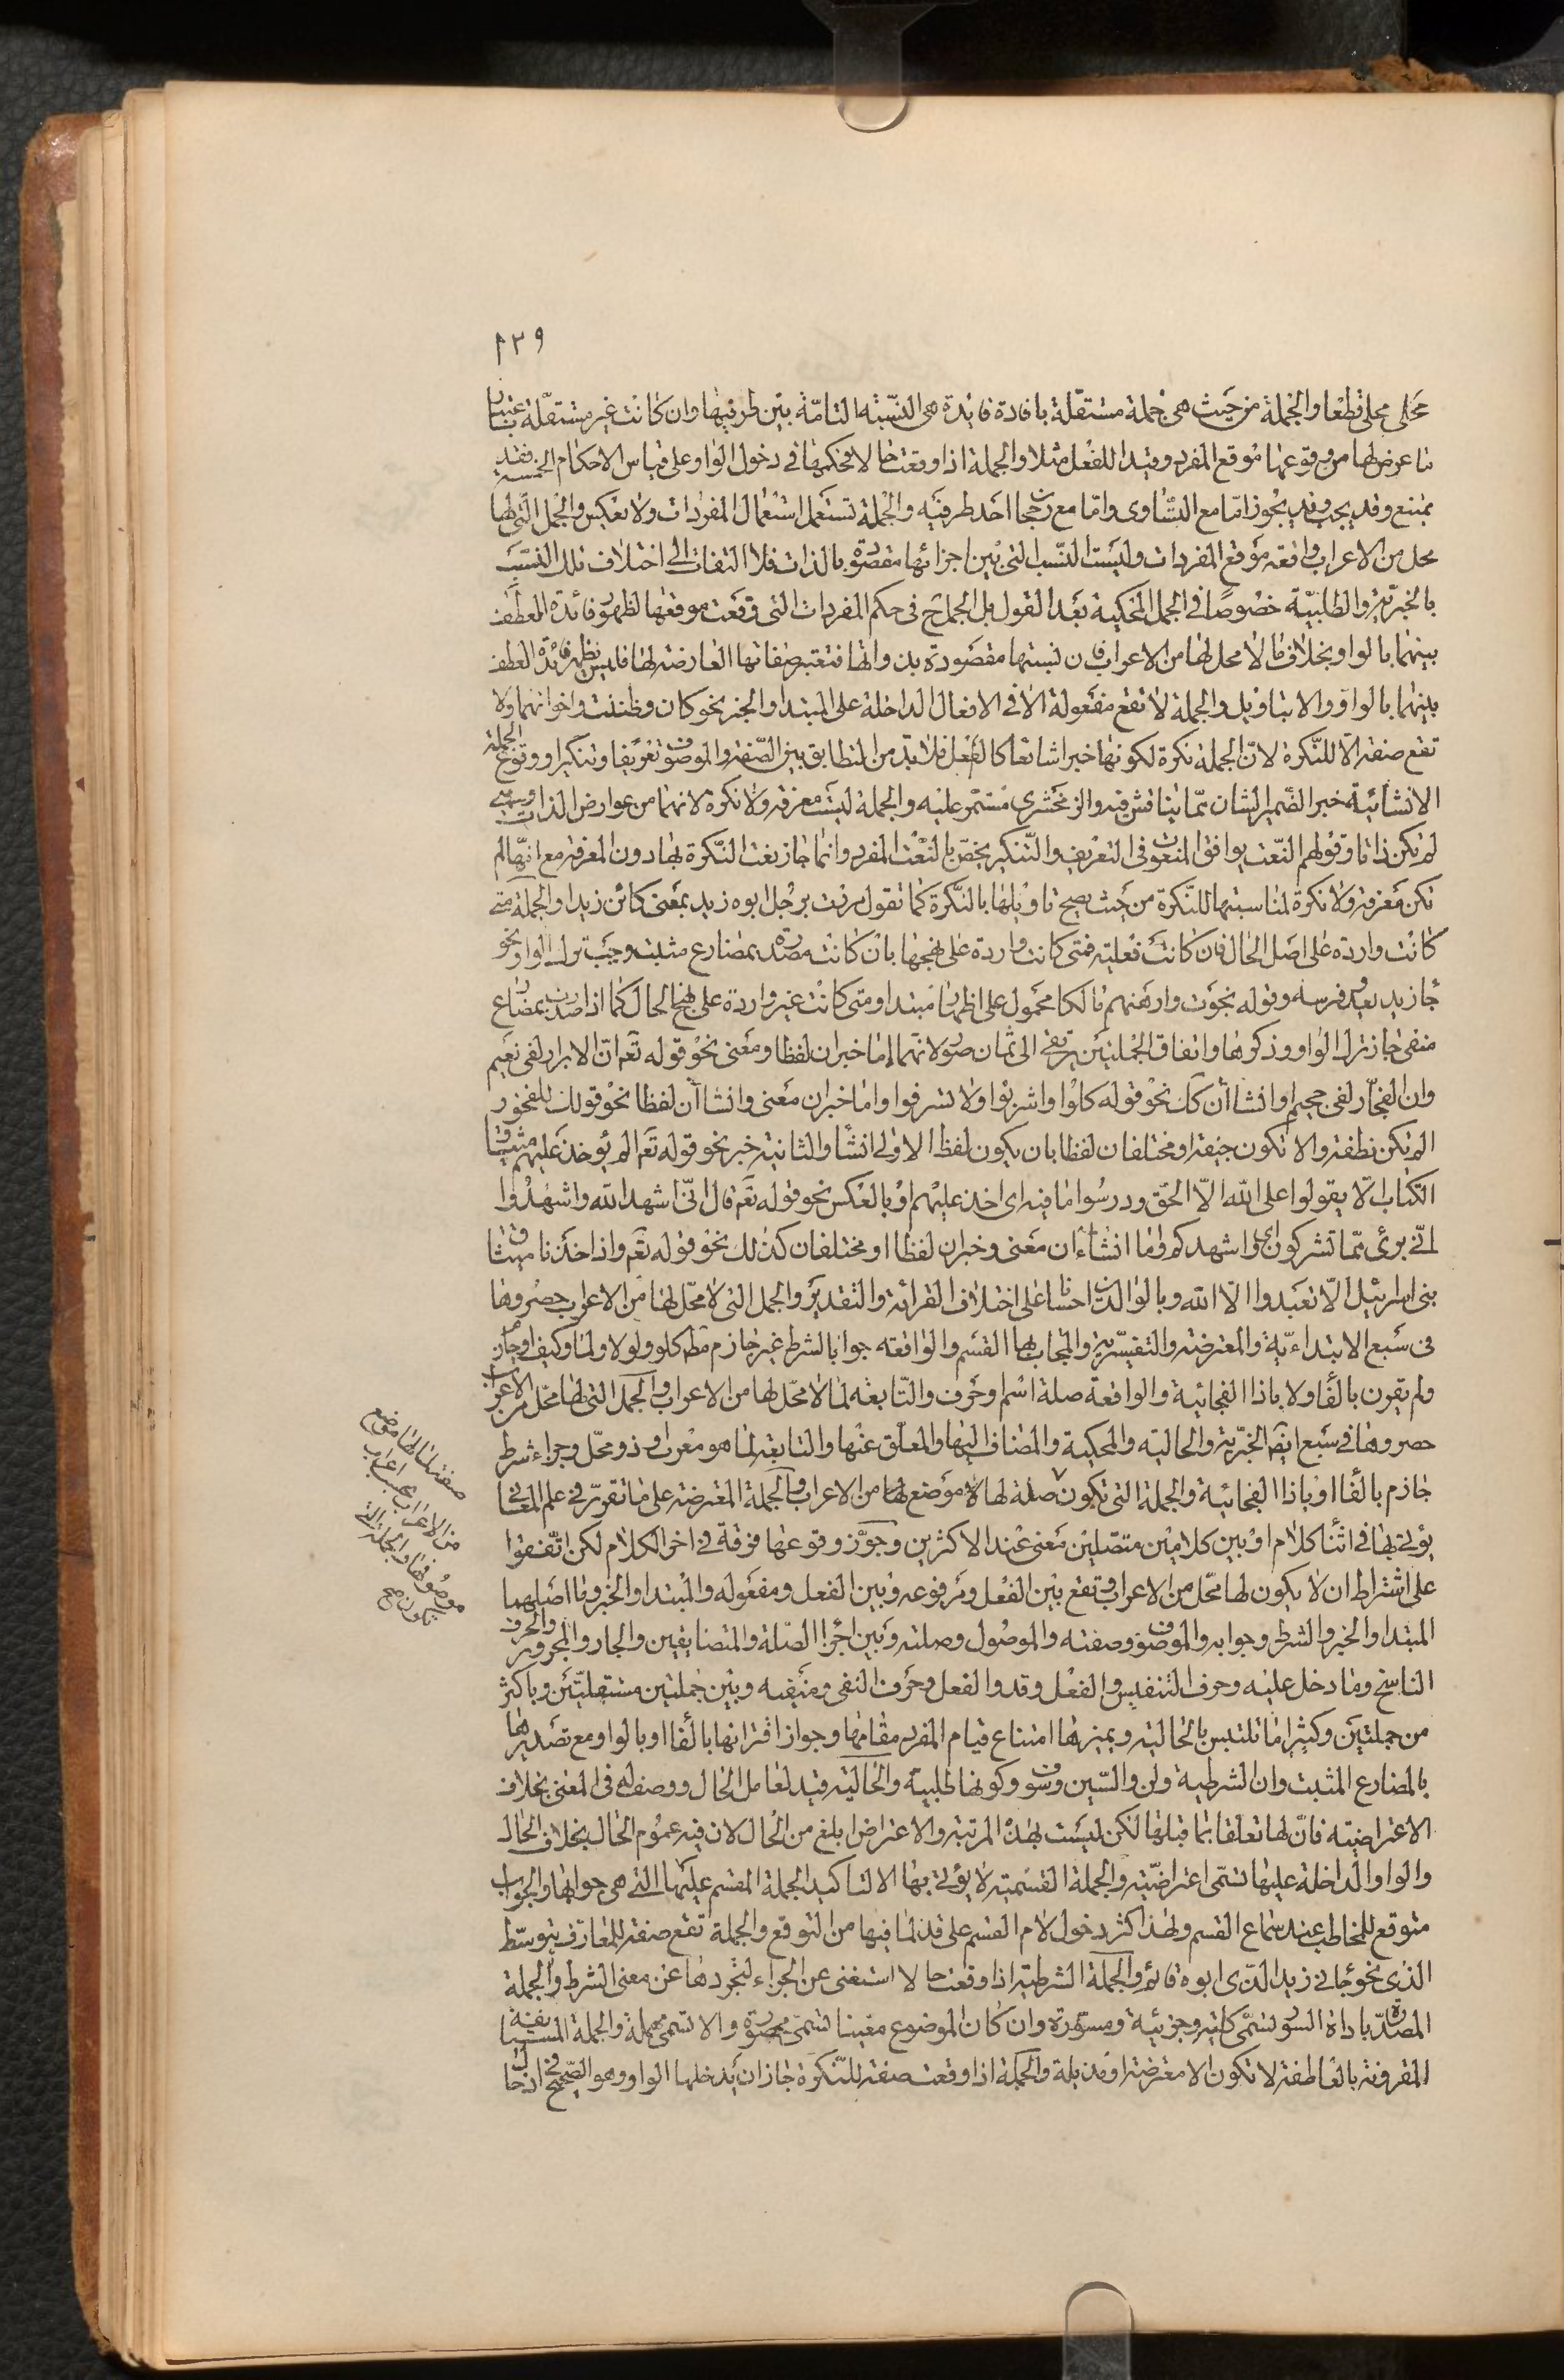 ١٣٩
محلى محلى قطعا والجملة من حيث هى جملة مستقلة بافادة فايدة هى النسبة التامة بين طرفيها وان كانت غير مستقلة باعتبار
ما عرض لها من وقوعها موقع المفرد وقيدا للفعل مثلا والجملة اذا وقعت حالا فحكمها فى دخول الواو على قياس الاحكام الخمسة فقد
يمتنع وقد يجب وقد يجوز اما مع التساوى واما مع رجحان احد طرفيه والجملة تستعمل استعمال المفردات ولا يعكس والجمل التى لها
محل من الاعراب واقعة موقع المفردات وليست النسب التى بين اجزائها مقصودة بالذات فلا التفات الى اختلاف تلك النسب
بالخبرية والطلبية خصوصا فى الجمل المحكية بعد القول بل الجمل ح فى حكم المفردات التى وقعت موقعها لظهور فائدة العطف
بينهما بالواو بخلاف ما لا محل لها من الاعراب فان نسبتها مقصودة بذواتها فتعتبر صفاتها العارضة لها فليس يظهر فائدة العطف
بينهما بالواو والا بتاويل والجملة لا تقع مفعولة الا فى الافعال الداخلة على المبتدا والخبر نحو كان وظننت واخواتهما ولا
تقع صفة الا للنكرة لان الجملة نكرة لكونها خبرا شائعا كالفعل فلا بد من التطابق بين الصفة والموصوف تعريفا وتنكيرا ووقوع الجملة
الانشائية خبر الضمير الشان مما يناقش فيه والزمخشرى مستمر عليه والجملة ليست معرفة ولا نكرة لانهما من عوارض الذات وهى
لم تكن ذاتا وقولهم النعت يوافق المنعوت فى التعريف والتنكير يخص بالنعت المفرد وانما جاز نعت النكرة بها دون المعرفة مع انها لم
تكن معرفة ولا نكرة لمناسبتها للنكرة من حيث يصح تاويلها بالنكرة كما تقول مررت برجل ابوه زيد بمعنى كائن زيدا والجملة متى
كانت واردة على اصل الحال فان كانت فعلية فمتى كانت واردة على نهجها بان كانت مصدرة بمضارع مثبت وجب ترك الواو نحو
جا زيد يعدو فرسه وقوله نجوت وارهنهم مالكا محمول على اظهار مبتدا ومتى كانت غير واردة على نهج الحال كما اذا صدرت بمضارع
منفى جاز ترك الواو وذكرها واتفاق الجملتين يرتقى الى ثمان صور لانهما اما خبران لفظا ومعنى نحو قوله تعم ان الابرار لفى نعيم
وان الفجار لفى جحيم او انشاآن كك نحو قوله كلوا واشربوا ولا تسرفوا واما خبران معنى وانشاآن لفظا نحو قولك للفخور
الم تكن نطفة والا تكون جيفة او مختلفان لفظا بان يكون لفظ الاولى انشا والثانية خبر نحو قوله تعم الم يؤخذ عليهم ميثاق
الكتاب الا يقولوا على الله الا الحق ودرسوا ما فيه اى اخذ عليهم او بالعكس نحو قوله تعم قال انى اشهد الله واشهدوا
انى برئ مما تشركون اى واشهدكم واما انشاءان معنى وخبران لفظا او مختلفان كذلك نحو قوله تعم واذ اخذنا ميثاق
بنى اسرائيل الا تعبدوا الا الله وبالوالدين احسانا على اختلاف القرائة والتقدير والجمل التى لا محل لها من الاعراب حصروها
فى سبع الابتداءية والمعترضة والتفسيرية والمجاب بها القسم والواقعة جوابا لشرط غير جازم مطه كلو ولولا ولما وكيف او جازم
ولم يقرن بالفا ولا باذا الفجائية والواقعة صلة اسم او حرف والتابعة لما لا محل لها من الاعراب والجمل التى لها محل من الاعراب
حصروها فى سبع ايضا الخبرية والحالية والمحكية والمضاف اليها والمعلق عنها والتابعة لما هو معرب وذو محل وجزاء شرط
جازم بالفا او باذا الفجائية والجملة التى تكون صلة لها لا موضع لها من الاعراب والجملة المعترضة على ما تقرر فى علم المعانى
يؤتى بها فى اثنا كلام او بين كلامين متصلين معنى عند الاكثرين وجوز وقوعها فرقة فى اخر الكلام لكن اتفقوا
على اشتراط ان لا يكون لها محل من الاعراب وتقع بين الفعل ومرفوعه وبين الفعل ومفعوله والمبتدا والخبر وما اصلهما
المبتدا والخبر والشرط وجوابه والموصوف وصفته والموصول وصلته وبين اجزا الصلة والمتضايفين والجار والمجرور والحرف
الناسخ وما دخل عليه وحرف التنفيس والفعل وقد والفعل وحرف النفى ومنفيه وبين جملتين مستقلتين وباكثر
من جملتين وكثيرا ما تلتبس بالحالية ويميزها امتناع قيام المفرد مقامها وجواز اقترانها بالفا او بالواو مع تصديرها
بالمضارع المثبت وان الشرطية ولن والسين وسوف وكونها طلبية والحالية قيد لعامل الحال ووصف له فى المعنى بخلاف
الاعتراضية فان لها تعلقا بما قبلها لكن ليست بهذه المرتبة والاعتراض ابلغ من الحال لان فيه عموم الحال بخلاف الحال
والواو الداخلة عليها تسمى اعتراضية والجملة القسمية لا يؤتى بها الا لتاكيد الجملة المقسم عليها التى هى جوابها والجواب
متوقع للمخاطب عند سماع القسم ولهذا كثر دخول لام القسم على قد لما فيها من التوقع والجملة تقع صفة للمعارف بتوسط
الذى نحو جانى زيد الذى ابوه قائم والجملة الشرطية اذا وقعت حالا استغنى عن الجزاء لتجردها عن معنى الشرط والجملة
المصدرة باداة السور تسمى كلية وجزئية ومسورة وان كان الموضوع معينا تسمى مخصوصة والا تسمى مهملة والجملة المستانفة
المقرونة بالعاطفة لا تكون الا معترضة او مذيلة والجملة اذا وقعت صفة للنكرة جاز ان يدخلها الواو وهو الصحيح فى اذ حال
صفة لها لها موضع
من الاعراب بحسب اعراب
موصوفها والجملة التى
تكون صح